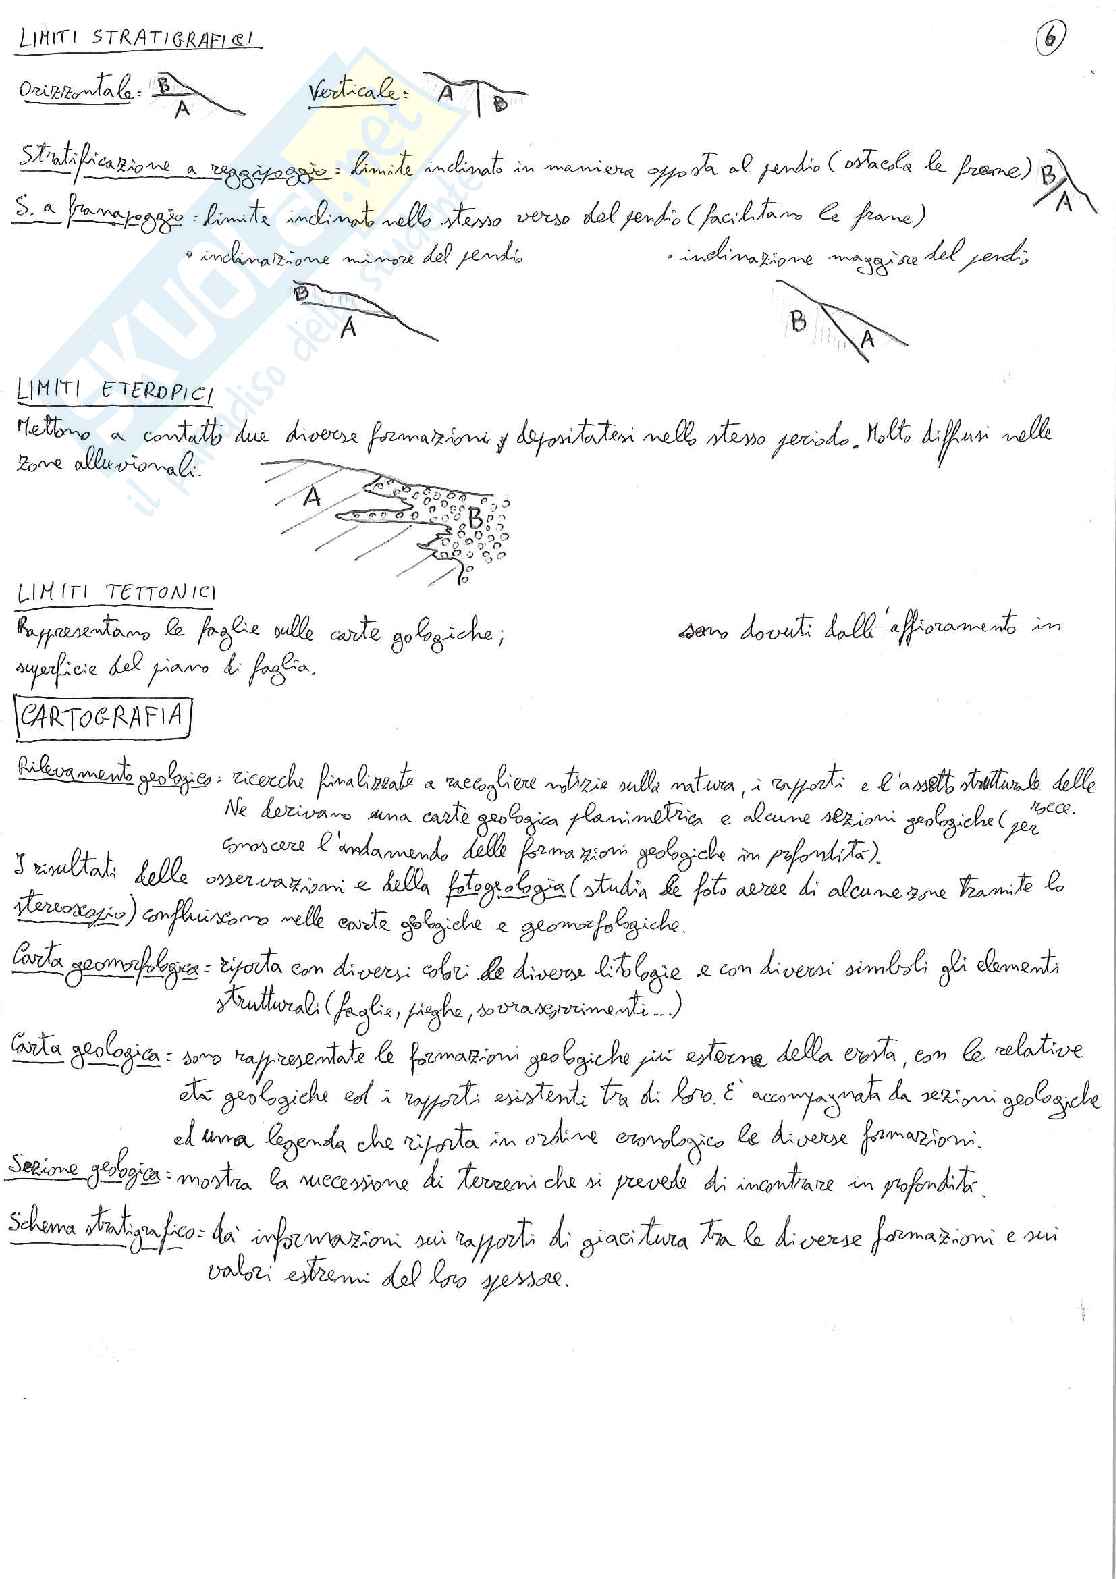 LIMITI STRATIGRAFICI
6
Orizzontale: B A
Verticale: A B
Stratificazione a reggipoggio = limite inclinato in maniera opposta al pendio (ostacola le frane) B A
S. a franapoggio = limite inclinato nello stesso verso del pendio (facilitano le frane)
• inclinazione minore del pendio
• inclinazione maggiore del pendio
B A
B A
LIMITI ETEROPICI
Mettono a contatto due diverse formazioni, depositatesi nello stesso periodo. Molto diffusi nelle
zone alluvionali.
A B
LIMITI TETTONICI
Rappresentano le faglie sulle carte gologiche; sono dovuti dall'affioramento in
superficie del piano di faglia.
CARTOGRAFIA
Rilevamento geologico = ricerche finalizzate a raccogliere notizie sulla natura, i rapporti e l'assetto strutturale delle
rocce.
Ne derivano una carta geologica planimetrica e alcune sezioni geologiche (per
conoscere l'andamendo delle formazioni geologiche in profondità).
I risultati delle osservazioni e della fotogeologia (studia le foto aeree di alcune zone tramite lo
stereoscopio) confluiscono nelle carte geologiche e geomorfologiche.
Carta geomorfologica = riporta con diversi colori le diverse litologie e con diversi simboli gli elementi
strutturali (faglie, pieghe, sovrascorrimenti...)
Carta geologica = sono rappresentate le formazioni geologiche più esterne della crosta, con le relative
età geologiche ed i rapporti esistenti tra di loro. E' accompagnata da sezioni geologiche
ed una legenda che riporta in ordine cronologico le diverse formazioni.
Sezione geologica = mostra la successione di terreni che si prevede di incontrare in profondità.
Schema stratigrafico = da' informazioni sui rapporti di giacitura tra le diverse formazioni e sui
valori estremi del loro spessore.
SKUOLA.net
il paradiso dello studente